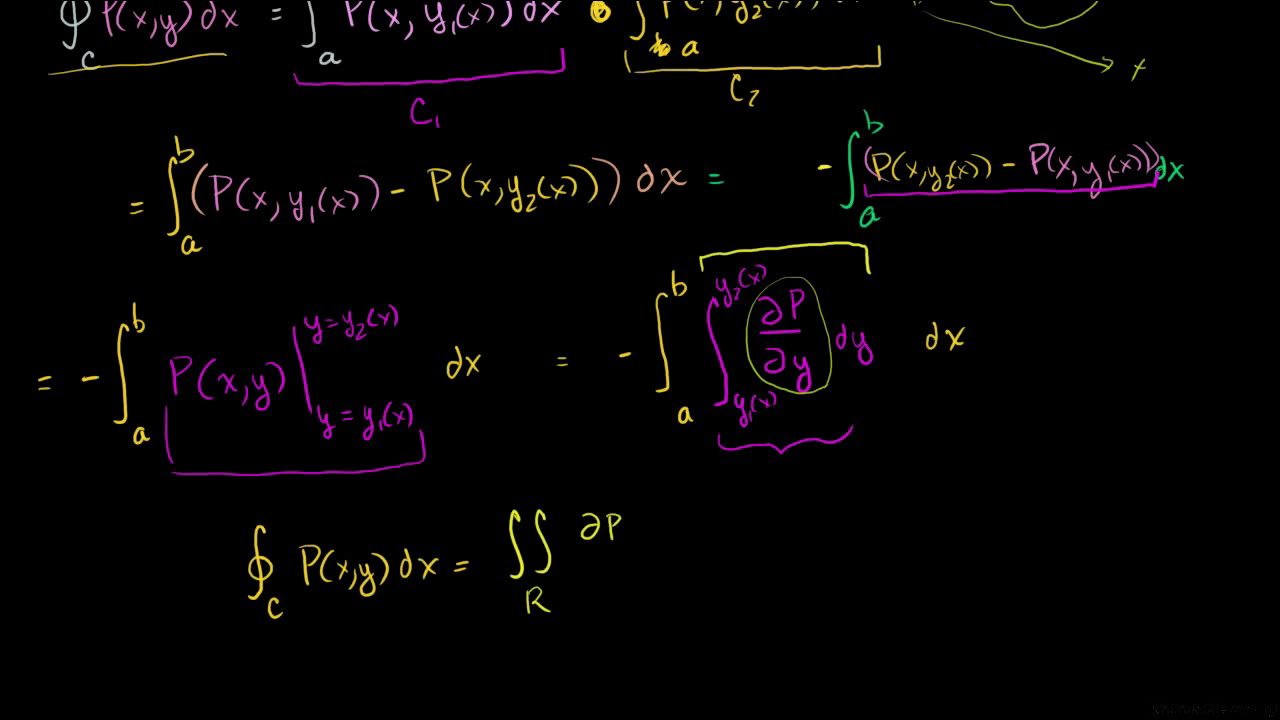 ∮_C P(x,y) dx = ∫_a P(x, y₁(x)) dx ∫_a y₂(x)
x
C₁ C₂
= ∫_a^b (P(x, y₁(x)) - P(x, y₂(x))) dx = - ∫_a^b (P(x, y₂(x)) - P(x, y₁(x))) dx
= - ∫_a^b P(x,y) |_{y = y₁(x)}^{y = y₂(x)} dx = - ∫_a^b ∫_{y₁(x)}^{y₂(x)} ∂P/∂y dy dx
∮_C P(x,y) dx = ∬_R ∂P